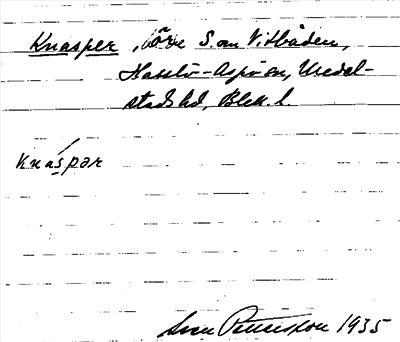 Knasper, öre S. om Vitbåden,
Hasslö-Aspöan, Medel-
stads hd, Blek. l.
knáspər
Sven Pettersson 1935